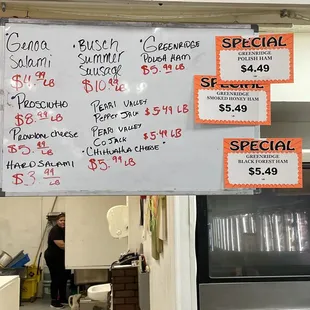 Genoa
Salami
$4.99
LB
Prosciutto
$8.99
LB
Provolone cheese
$5.99
LB
HARD SALAMI
$3.99
LB
• Busch
Summer
Sausage
$10.99
Pearl Valley
Pepper Jack $5.49 LB
Pearl Valley
Co Jack $5.49 LB
• Chihuahua cheese •
$5.99 LB
• Greenridge
Polish Ham
$5.99 LB
SPECIAL
GREENRIDGE
POLISH HAM
$4.49
SPECIAL
GREENRIDGE
SMOKED HONEY HAM
$5.49
SPECIAL
GREENRIDGE
BLACK FOREST HAM
$5.49